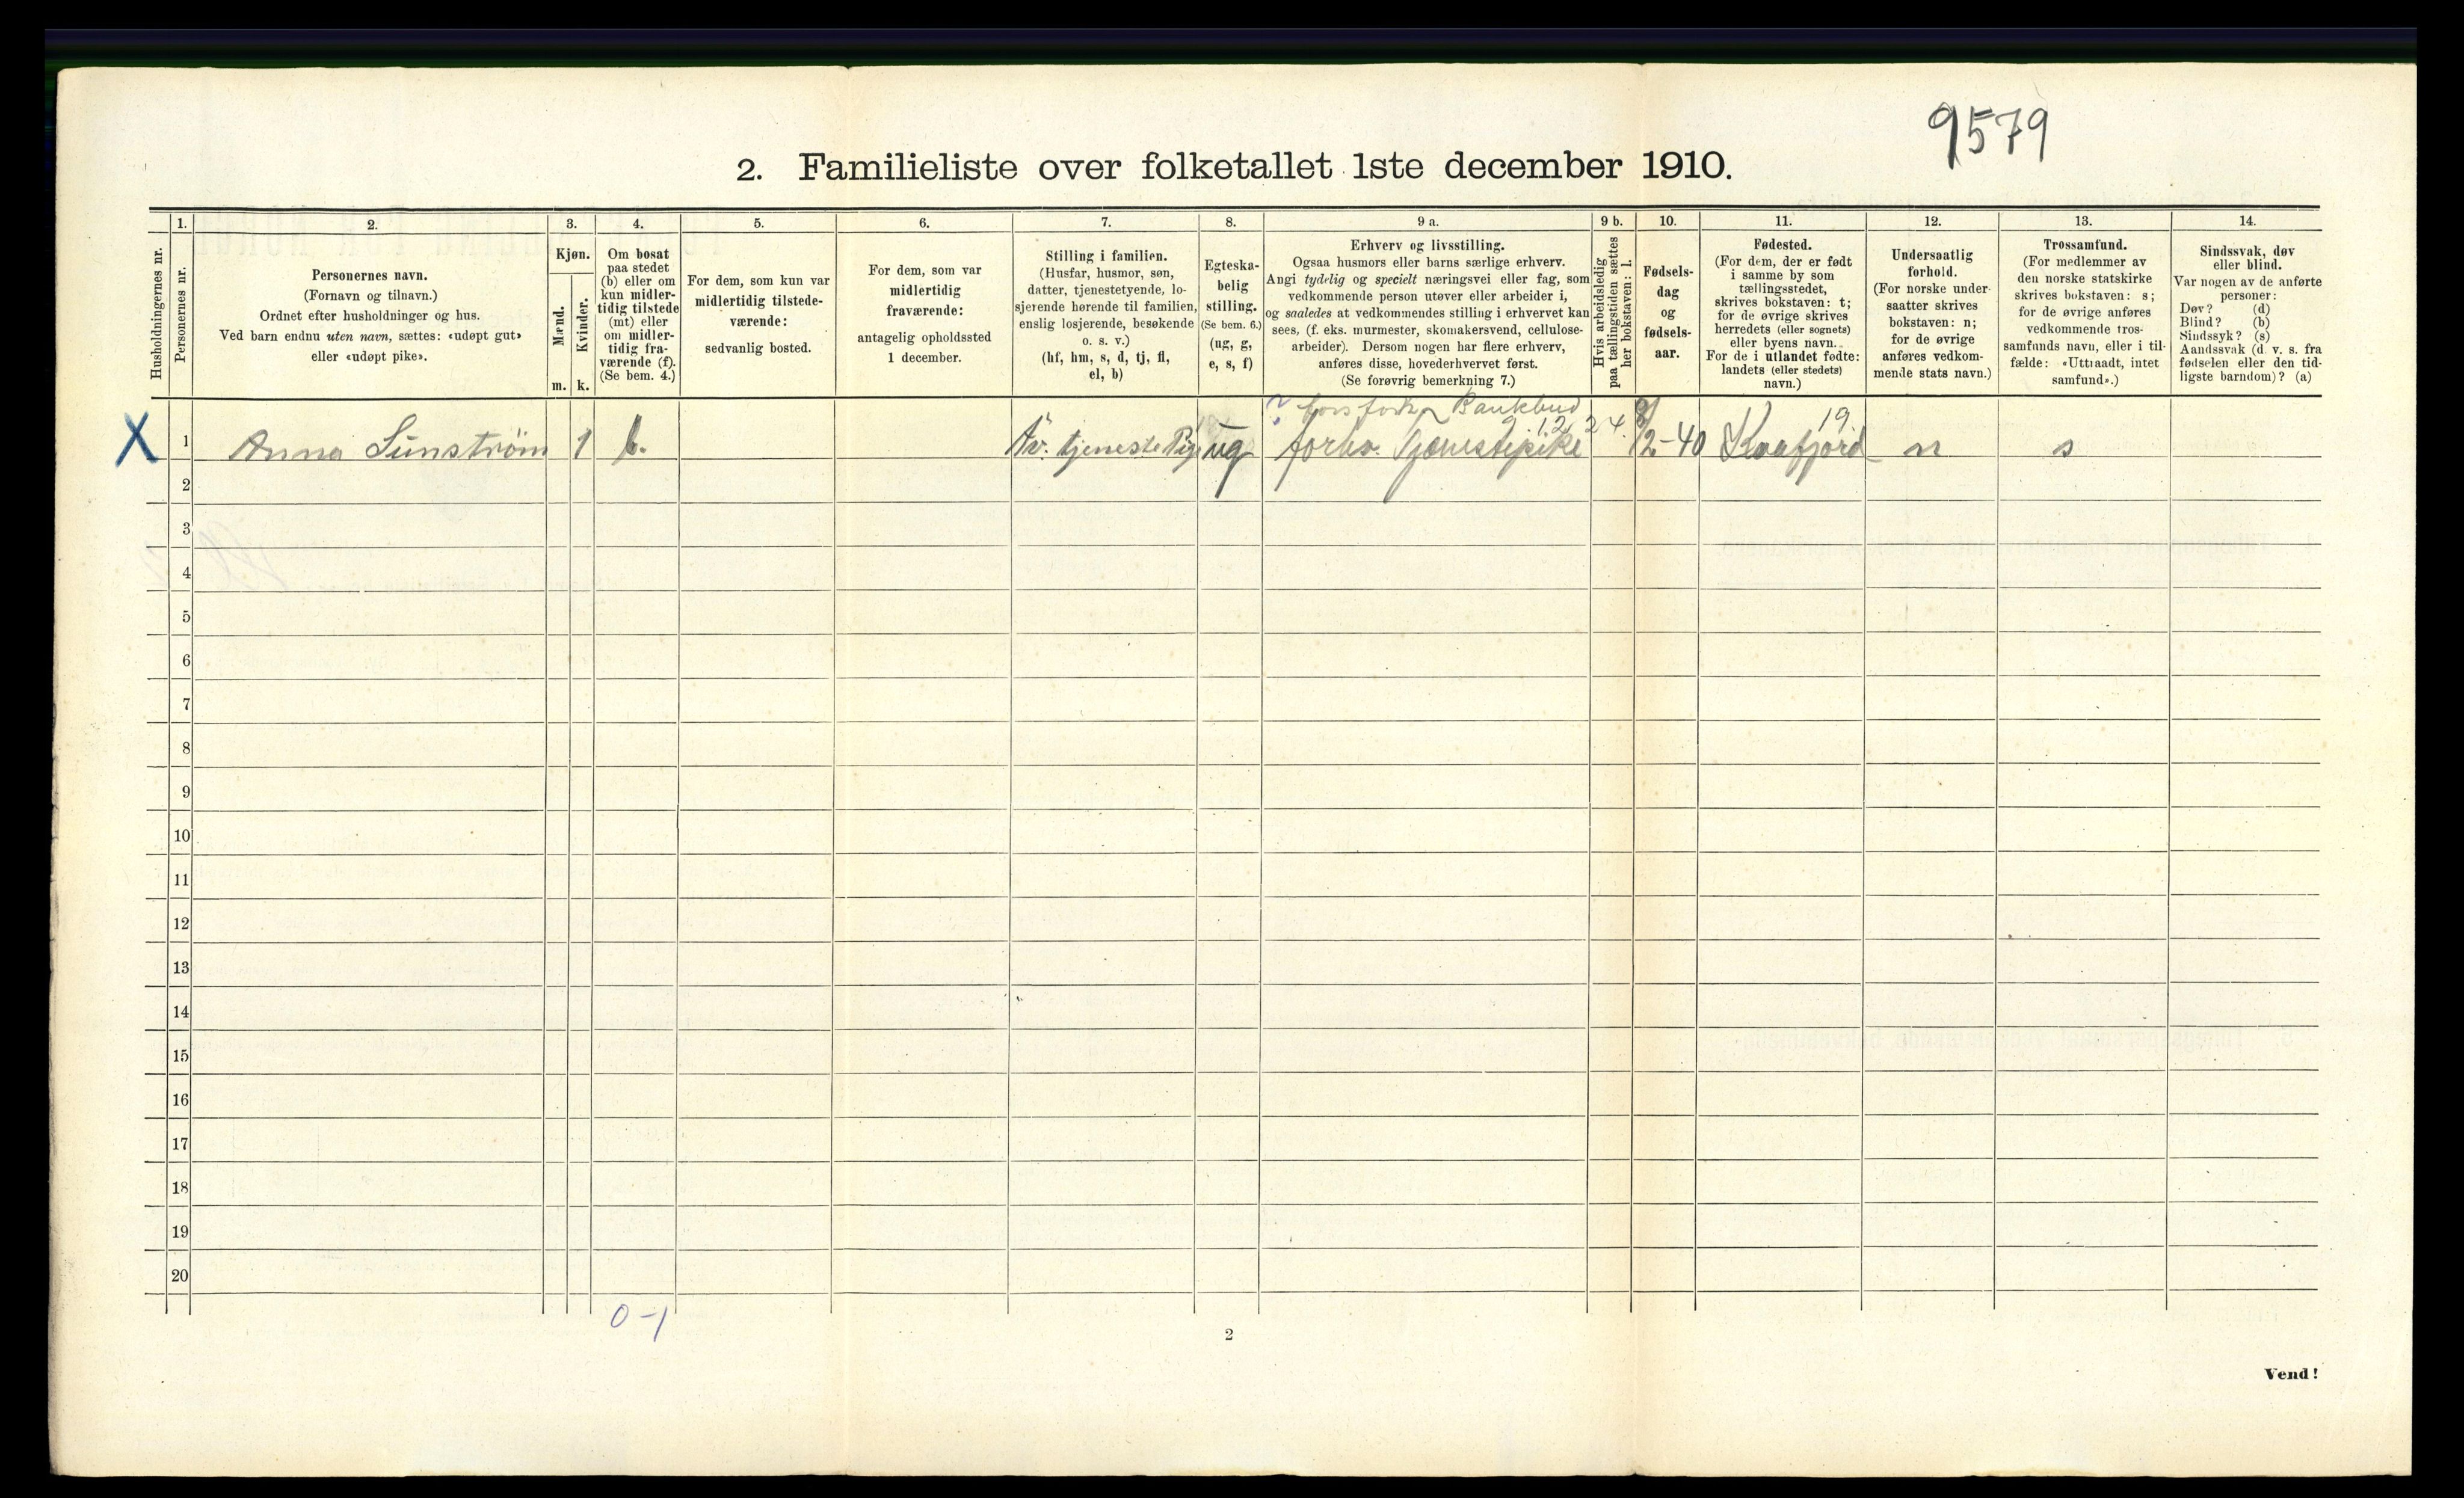 9579
2. Familieliste over folketallet 1ste december 1910.
Husholdningernes nr.
1.
Personernes nr.
2.
Personernes navn.
(Fornavn og tilnavn.)
Ordnet efter husholdninger og hus.
Ved barn endnu uten navn, sættes: «udøpt gut»
eller «udøpt pike».
3.
Kjøn.
Mænd.
m.
Kvinder.
k.
4.
Om bosat
paa stedet
(b) eller om
kun midler-
tidig tilstede
(mt) eller
om midler-
tidig fra-
værende (f).
(Se bem. 4.)
5.
For dem, som kun var
midlertidig tilstede-
værende:
sedvanlig bosted.
6.
For dem, som var
midlertidig
fraværende:
antagelig opholdssted
1 december.
7.
Stilling i familien.
(Husfar, husmor, søn,
datter, tjenestetyende, lo-
sjerende hørende til familien,
enslig losjerende, besøkende
o. s. v.)
(hf, hm, s, d, tj, fl,
el, b)
8.
Egteska-
belig
stilling.
(Se bem. 6.)
(ug, g,
e, s, f)
9 a.
Erhverv og livsstilling.
Ogsaa husmors eller barns særlige erhverv.
Angi tydelig og specielt næringsvei eller fag, som
vedkommende person utøver eller arbeider i,
og saaledes at vedkommendes stilling i erhvervet kan
sees, (f. eks. murmester, skomakersvend, cellulose-
arbeider). Dersom nogen har flere erhverv,
anføres disse, hovederhvervet først.
(Se forøvrig bemerkning 7.)
9 b.
Hvis arbeidsledig
paa tællingstiden sættes
her bokstaven: l.
10.
Fødsels-
dag
og
fødsels-
aar.
11.
Fødested.
(For dem, der er født
i samme by som
tællingsstedet,
skrives bokstaven: t;
for de øvrige skrives
herredets (eller sognets)
eller byens navn.
For de i utlandet fødte:
landets (eller stedets)
navn.)
12.
Undersaatlig
forhold.
(For norske under-
saatter skrives
bokstaven: n;
for de øvrige
anføres vedkom-
mende stats navn.)
13.
Trossamfund.
(For medlemmer av
den norske statskirke
skrives bokstaven: s;
for de øvrige anføres
vedkommende tros-
samfunds navn, eller i til-
fælde: «Uttraadt, intet
samfund».)
14.
Sindssvak, døv
eller blind.
Var nogen av de anførte
personer:
Døv? (d)
Blind? (b)
Sindssyk? (s)
Aandssvak (d. v. s. fra
fødselen eller den tid-
ligste barndom)? (a)
? forsørk. Bankbud
9.12 24. 19.
X 1 Anna Sunström 1 b. tjeneste Pige ug forhv. Tjenestepike 8/2-40 Kvafjord n s
2
3
4
5
6
7
8
9
10
11
12
13
14
15
16
17
18
19
20
0-1
2
Vend!